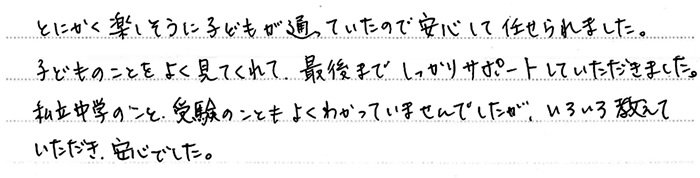 とにかく楽しそうに子どもが通っていたので安心して任せられました。
子どものことをよく見てくれて、最後までしっかりサポートしていただきました。
私立中学のこと、受験のこともよくわかっていませんでしたが、いろいろ教えて
いただき、安心でした。